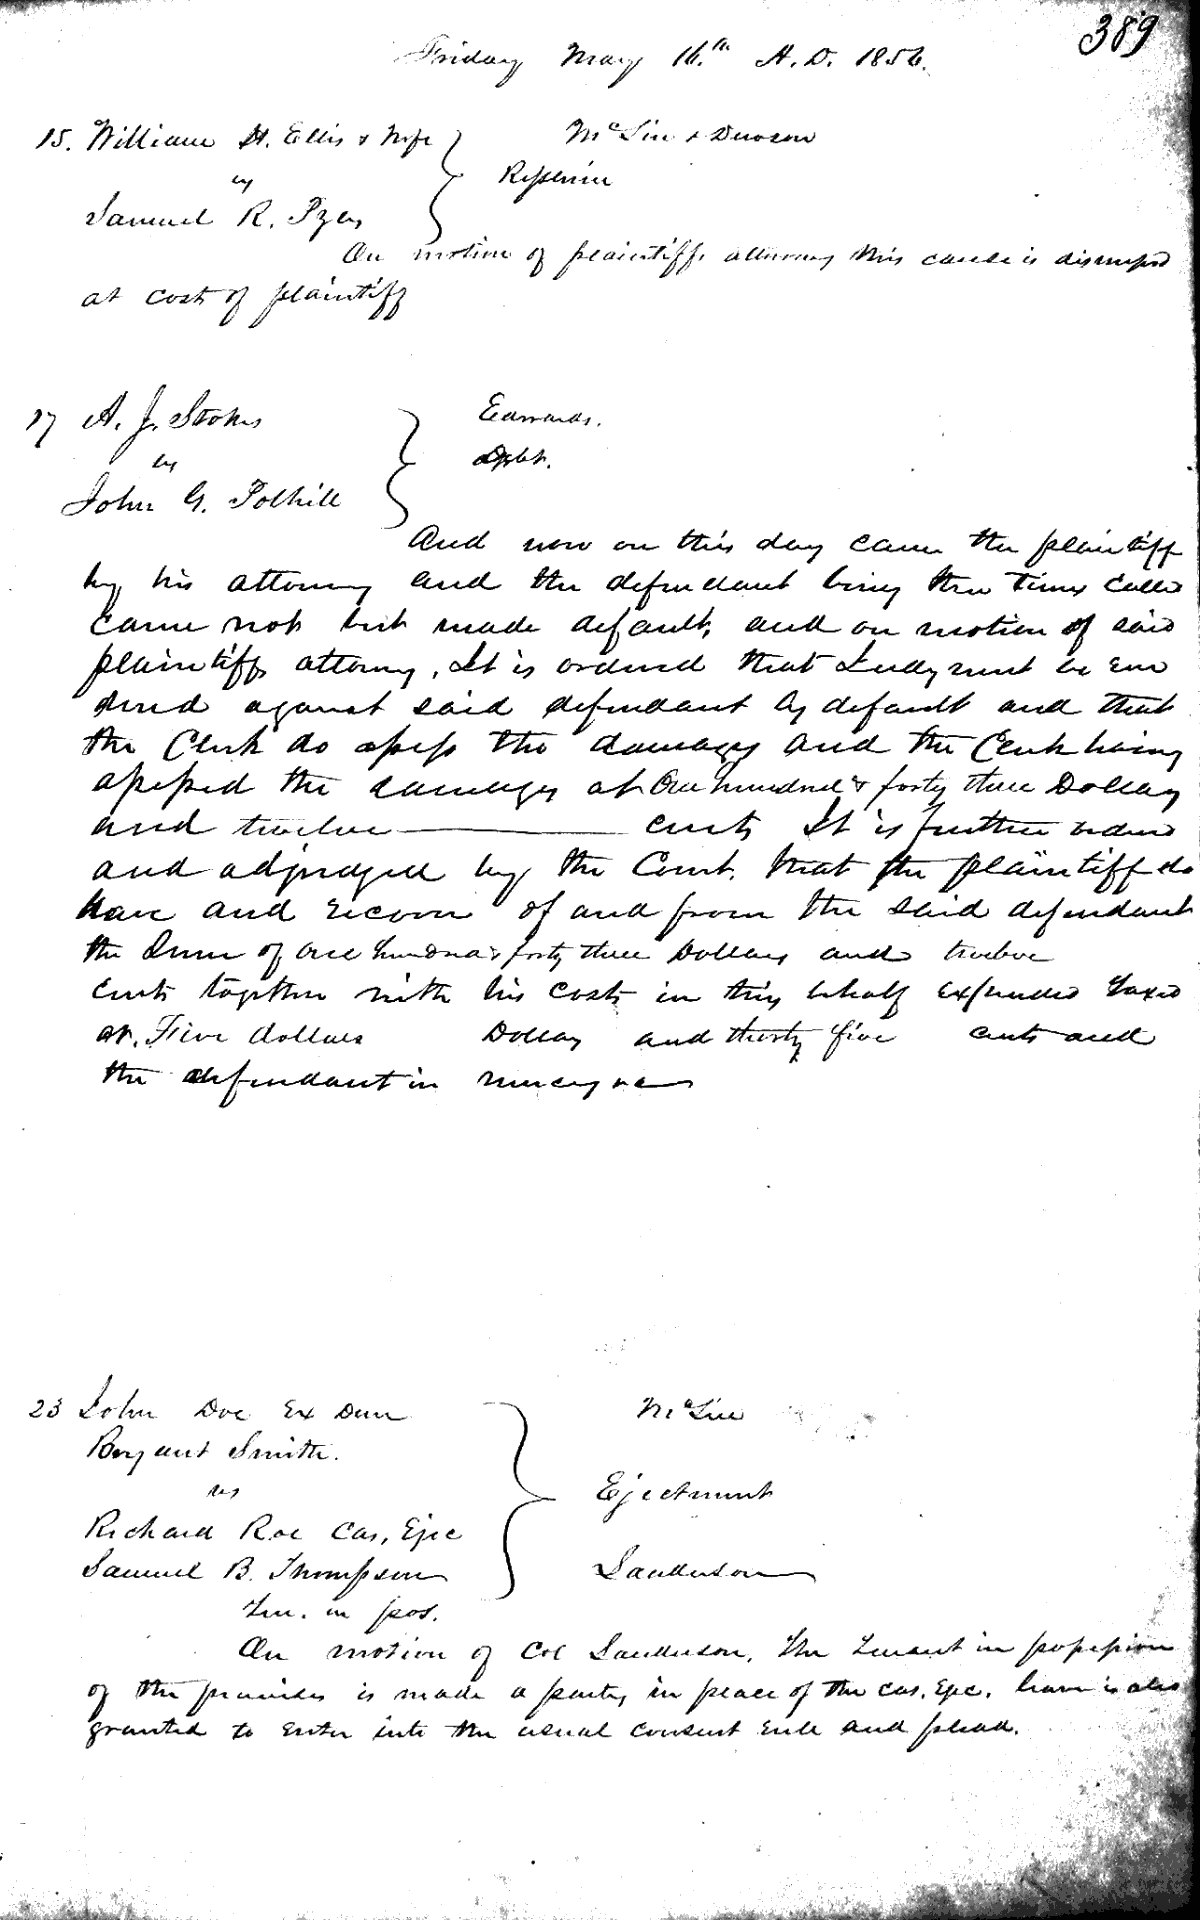 389
Friday May 16.th A. D. 1856.
15. William H. Ellis & Wife McLin & Dawson
vs Replevin
Samuel R. Pyles
On motion of plaintiffs attorney this cause is dismissed
at cost of plaintiff
17 A. J. Stokes Edwards.
vs Debt.
John G. Polhill
And now on this day came the plaintiff
by his attorney and the defendant being three times called
came not but made default, and on motion of said
plaintiffs attorney, It is ordered that Judgment be en
tered against said defendant by default and that
the Clerk do assess the damages and the Clerk having
assessed the damages at One hundred & forty three Dollars
and twelve cents It is further ordered
and adjudged by the Court. that the plaintiff do
have and recover of and from the said defendant
the Sum of one hundred & forty three Dollars and twelve
cents together with his costs in this behalf expended taxed
at. Five dollars Dollars and thirty five cents and
the defendant in mercy &c
23 John Doe Ex Dem McLin
Bryant Smith.
vs Ejectment
Richard Roe Cas, Ejec
Samuel B. Thompson Sanderson
Ten. in pos.
On motion of Col Sanderson, the Tenant in possession
of the premises is made a party in place of the Cas, Ejec. leave is also
granted to enter into the usual consent rule and plead.